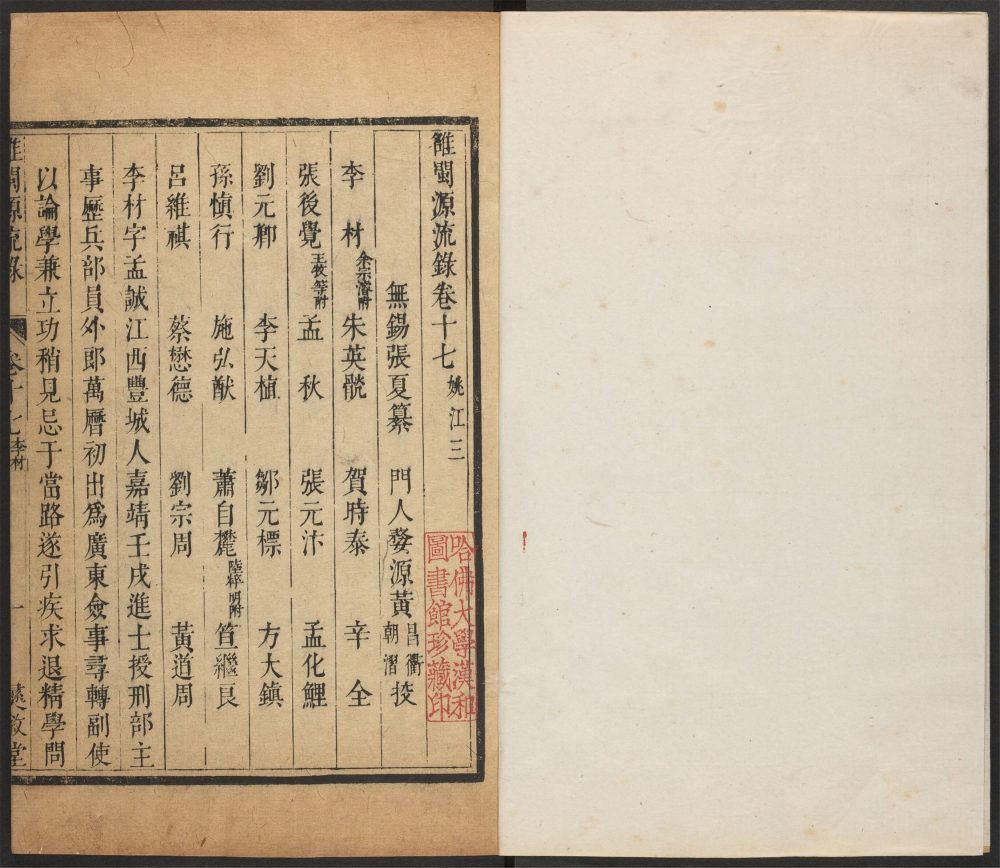 雒閩源流錄卷十七 姚江三
無錫張夏纂 門人婺源黃昌衢朝溍挍
李材 余宗濬附 朱英㲄 賀時泰 辛全
張後覺 王教等附 孟秋 張元汴 孟化鯉
劉元卿 李天植 鄒元標 方大鎮
孫慎行 施弘猷 蕭自麓 陸粹明附 笪繼良
呂維祺 蔡懋德 劉宗周 黃道周
李材字孟誠江西豐城人嘉靖壬戌進士授刑部主
事歷兵部員外郎萬曆初出爲廣東僉事尋轉副使
以論學兼立功稍見忌于當路遂引疾求退精學問
雒閩源流錄 卷十七 李材 一 彝敘堂
哈佛大學漢和
圖書館珍藏印